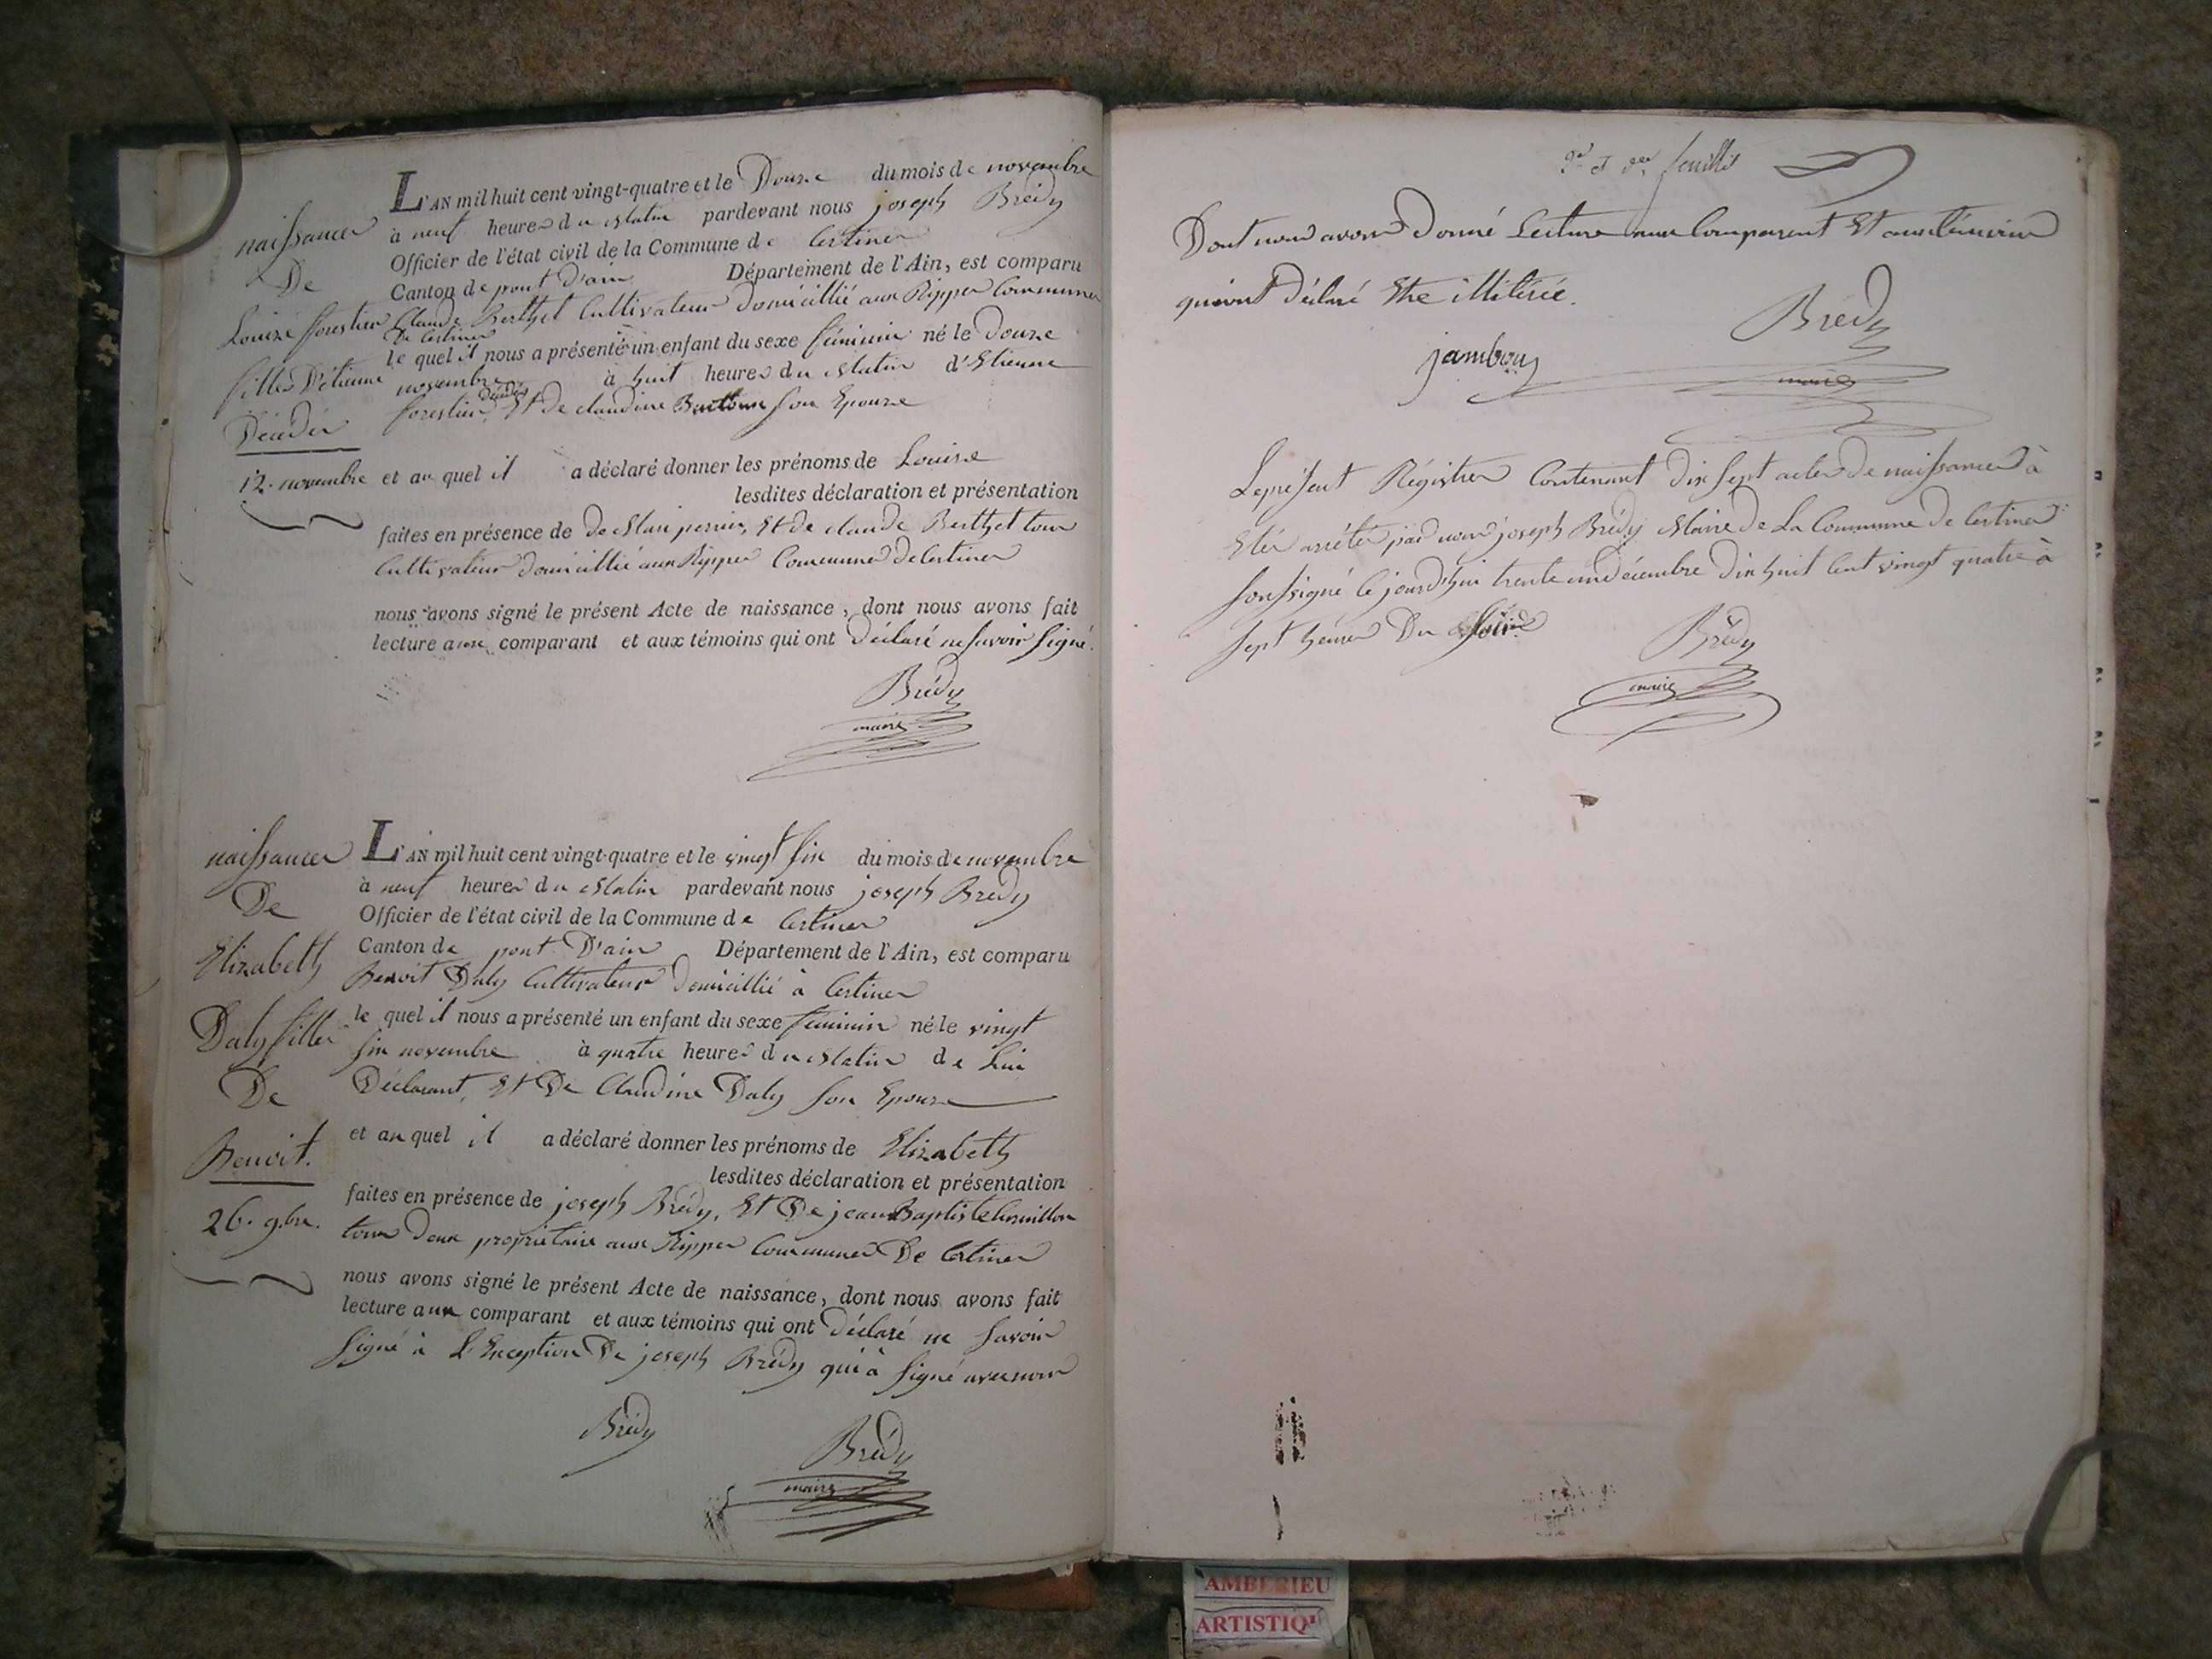 naissance
De
Louise forestier
fille D'étienne
Décédé
12. novembre
L'AN mil huit cent vingt-quatre et le Douze du mois de novembre
à neuf heures du Matin pardevant nous joseph Brédy
Officier de l'état civil de la Commune de Certines
Canton de pont D'ain Département de l'Ain, est comparu
Claude Berthet Cultivateur domicillié aux Rippes Commune
De Certines
le quel il nous a présenté un enfant du sexe féminin né le douze
novembre à huit heures du Matin d'Etienne
forestier décédé Et de claudine son Epouze
et au quel il a déclaré donner les prénoms de Louise
lesdites déclaration et présentation
faites en présence de de Mari perrier, Et de claude Berthet tous
Cultivateur domicillié aux Rippes Commune de Certines
nous avons signé le présent Acte de naissance, dont nous avons fait
lecture aux comparant et aux témoins qui ont Déclaré ne savoir signé.
Brédy
maire
naissance
De
Elizabeth
Daly fille
De
Benoit.
26. 9.bre.
L'AN mil huit cent vingt-quatre et le vingt six du mois de novembre
à neuf heures du Matin pardevant nous joseph Brédy
Officier de l'état civil de la Commune de Certines
Canton de pont D'ain Département de l'Ain, est comparu
Benoit Daly Cultivateur domicillié à Certines
le quel il nous a présenté un enfant du sexe féminin né le vingt
six novembre à quatre heures du Matin de Lui
Déclarant, Et De Claudine Daly son Epouze
et au quel il a déclaré donner les prénoms de Elizabeth
lesdites déclaration et présentation
faites en présence de joseph Brédy, Et De jean Baptiste
tous deux propriétaire aux Rippes Commune De Certines
nous avons signé le présent Acte de naissance, dont nous avons fait
lecture aux comparant et aux témoins qui ont Déclaré ne savoir
signé à L'Exception De joseph Brédy qui à signé avec nous
Brédy
Brédy
maire
9e et der feuillet
Dont nous avons Donné Lecture aux Comparent Et aux témoins
qui ont Déclaré Etre illitérée.
jambon
Brédy
maire
Le présent Régistre Contenant dix sept actes de naissance à
Eté arrêté par nous joseph Brédy Maire de La Commune de Certines
sousigné le jourd'hui trente un décembre dix huit cent vingt quatre à
sept heures Du soir
Brédy
maire
AMBERIEU
ARTISTIQ